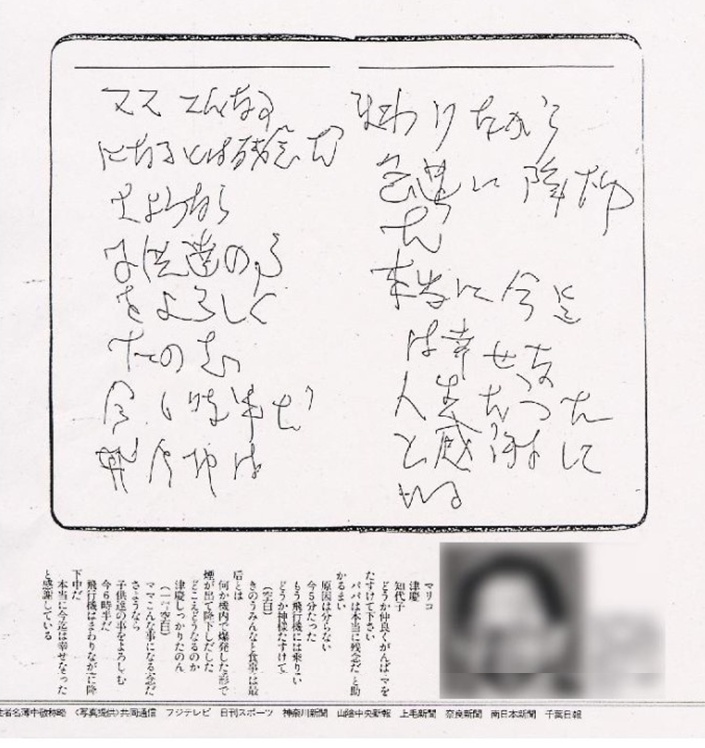 ママ こんな事
になるとは残念だ
さよなら
子供達の事
をよろしく
たのむ
今6時半だ
飛行機は
まわりながら
急速に降下中
だ
本当に今迄
は幸せな
人生だった
と感謝して
いる
マリコ
津慶
知代子
どうか仲良くがんばマを
たすけて下さい
パパは本当に残念だと助
かるまい
原因は分らない
今5分たった
もう飛行機には乗りい
どうか神様たすけて
(空白)
きのうみんなと食事は最
后とは
何か機内で爆発した形で
煙が出て降下しだした
どこえどうなるのか
津慶しっかりたのん
空白)
ママこんな事になる念だ
さようなら
子供達の事をよろしむ
今6時半だ
飛行機はまわりながに降
下中だ
本当に今迄は幸せなった
と感謝している
者名簿中敬称略 〈写真提供〉共同通信 フジテレビ 日刊スポーツ 神奈川新聞 山陰中央新報 上毛新聞 奈良新聞 南日本新聞 千葉日報